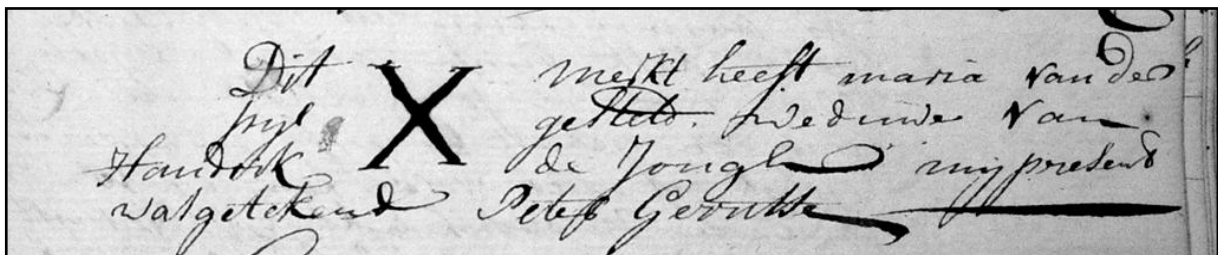 Dit X Merkt heeft maria van der
sryl gestelt. weduwe van
Handrik de Jongh mij present
wasgetekend Peter Gerritse